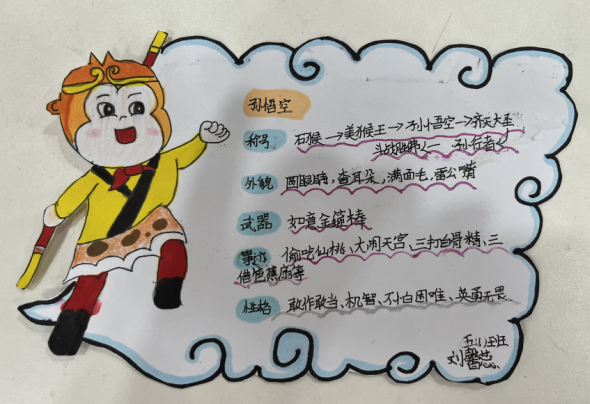 孙悟空
称号 石猴→美猴王→孙悟空→齐天大圣
斗战胜佛← 孙行者←
外貌 圆眼睛,查耳朵,满面毛,雷公嘴
武器 如意金箍棒
事迹 偷吃仙桃、大闹天宫、三打白骨精、三
借芭蕉扇等
性格 敢作敢当、机智、不怕困难、英勇无畏